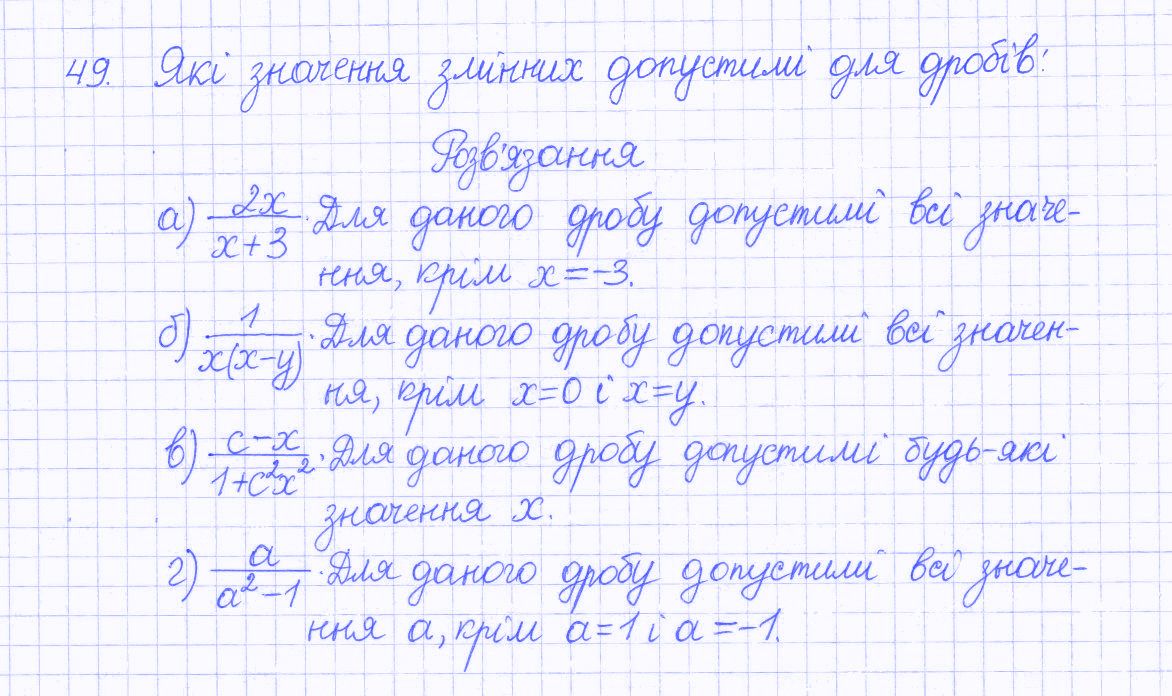 49. Які значення змінних допустимі для дробів:
Розв'язання
а) 2x/(x+3). Для даного дробу допустимі всі значе-
ння, крім x=-3.
б) 1/(x(x-y)). Для даного дробу допустимі всі значен-
ня, крім x=0 і x=y.
в) (c-x)/(1+c²x²). Для даного дробу допустимі будь-які
значення x.
г) a/(a²-1). Для даного дробу допустимі всі значе-
ння a, крім a=1 і a=-1.